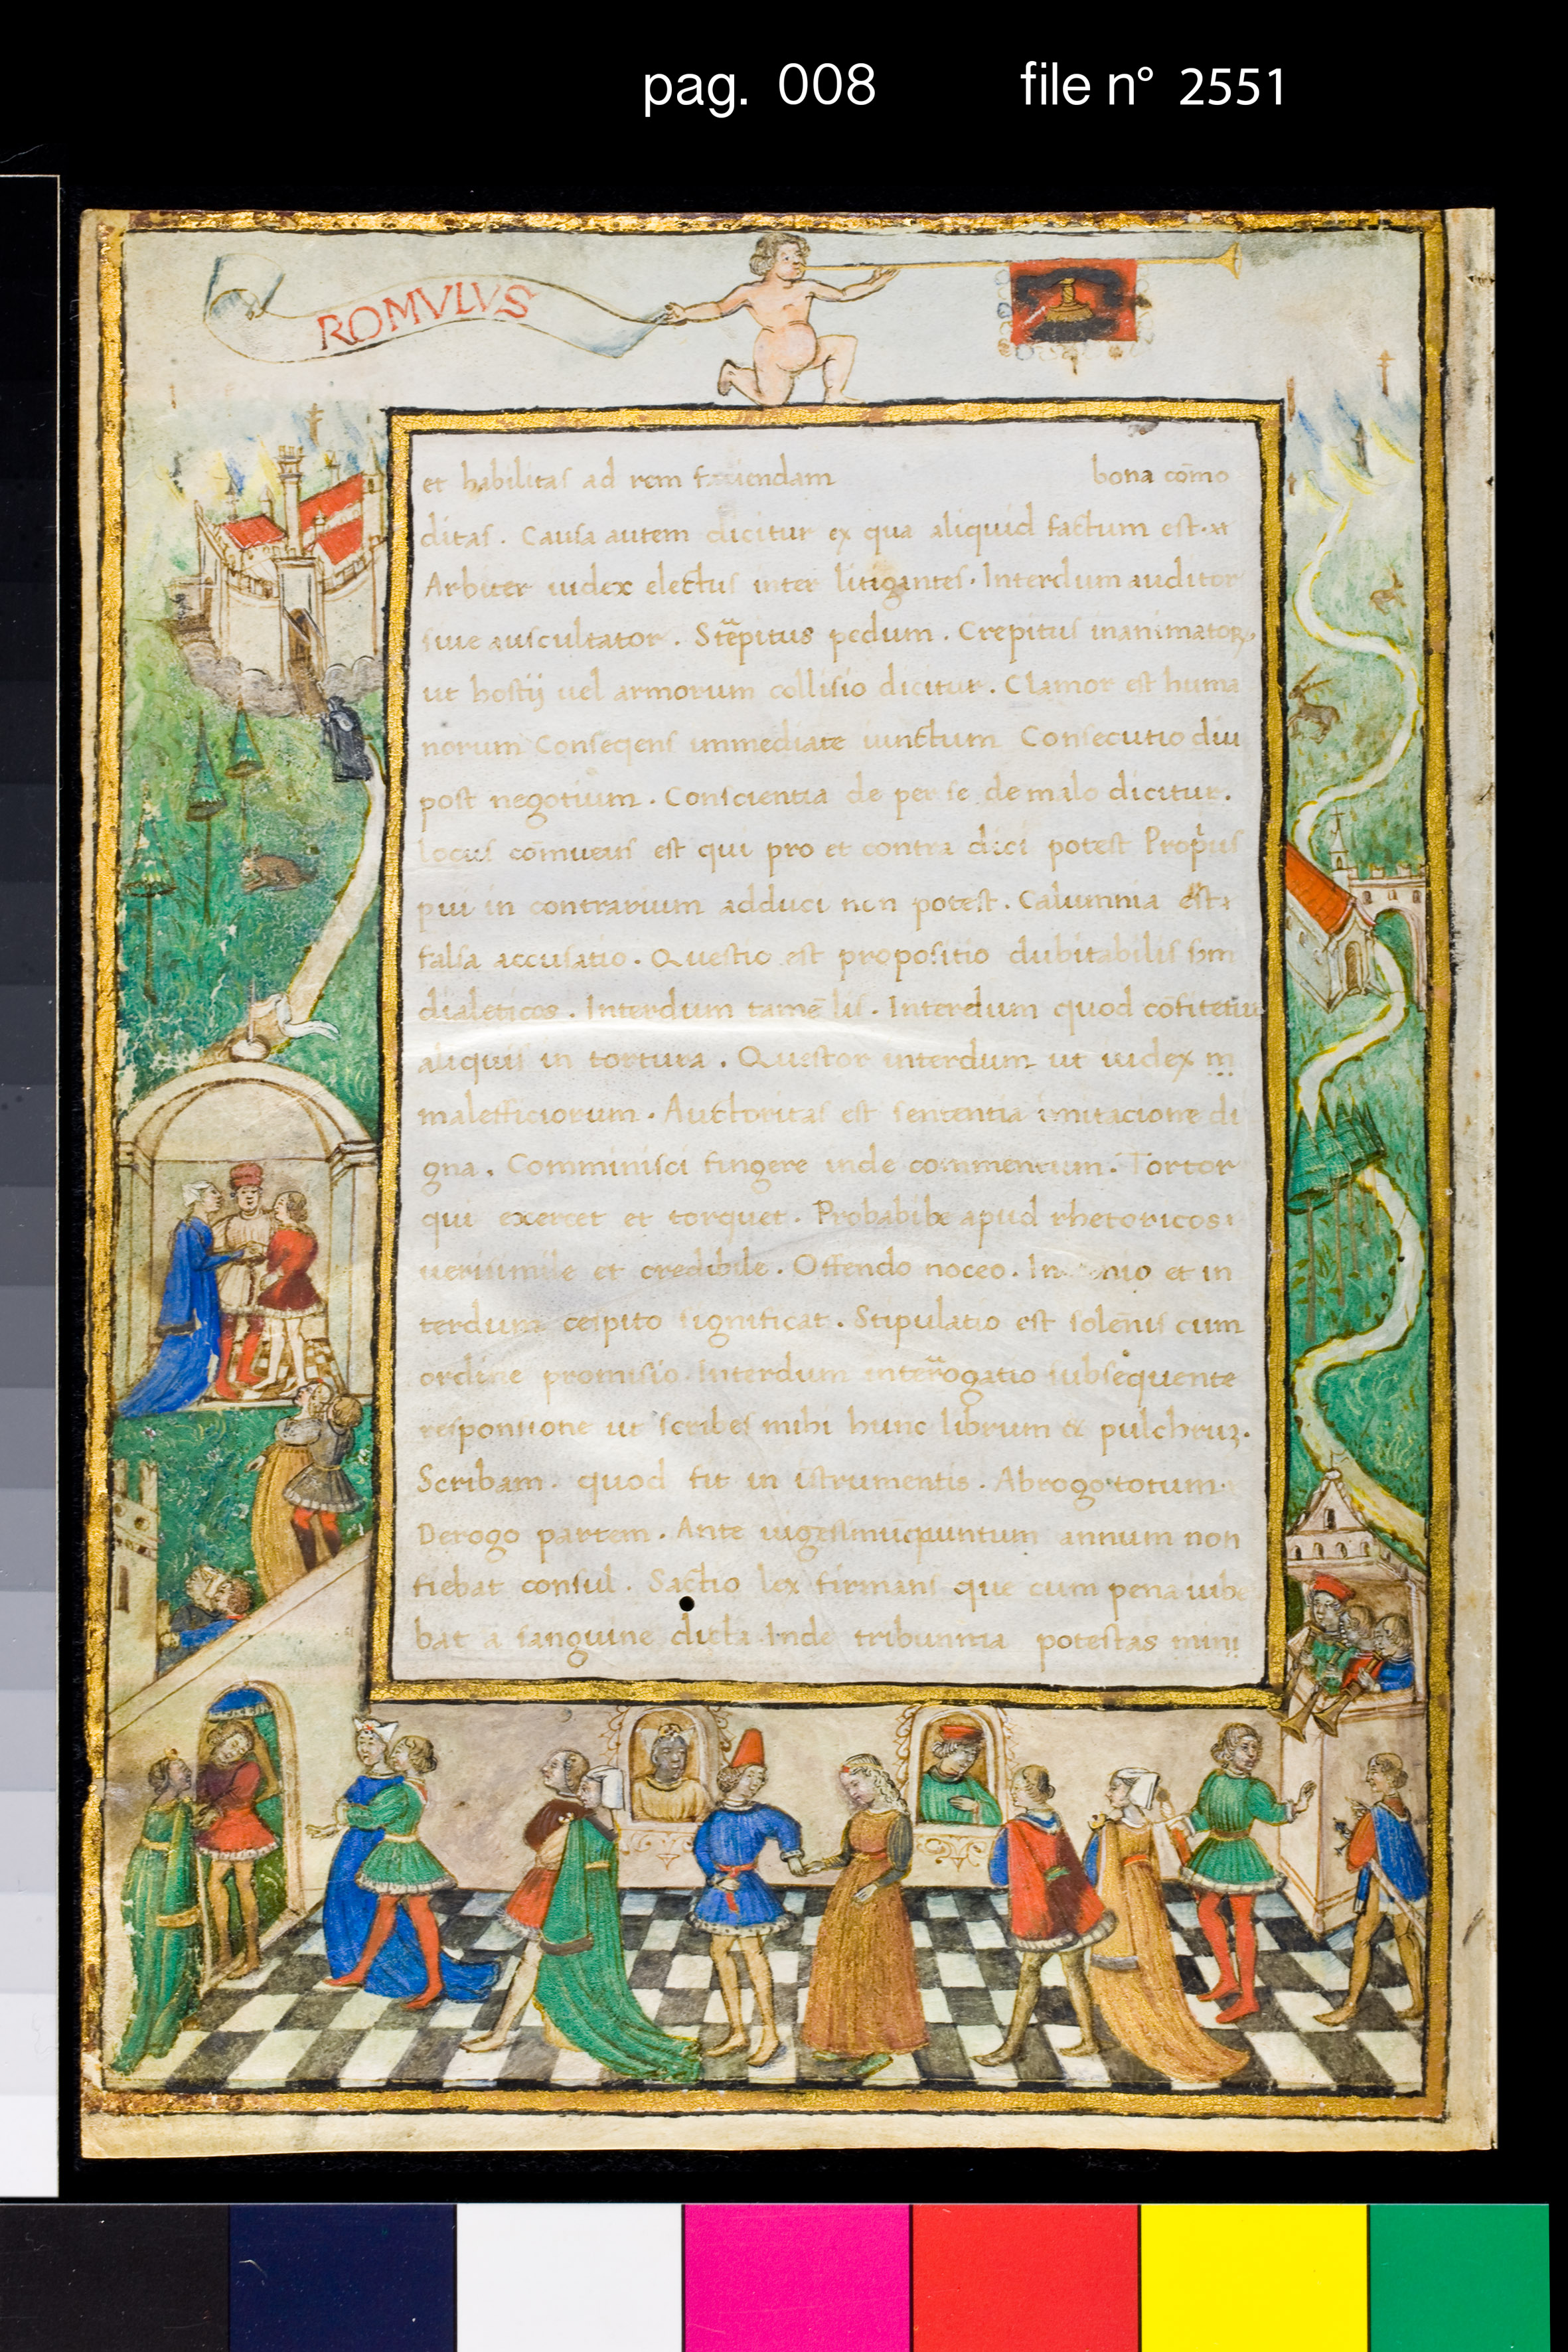 pag. 008 file n° 2551
ROMVLVS
et habilitas ad rem faciendam bona cōmo
ditas. Causa autem dicitur ex qua aliquid factum est.
Arbiter iudex electus inter litigantes. Interdum auditor
siue auscultator. Strepitus pedum. Crepitus inanimatoꝝ
ut hostij uel armorum collisio dicitur. Clamor est huma
norum Conseqens immediate iunctum Consecutio diu
post negotium. Conscientia de per se de malo dicitur.
locus cōmueis est qui pro et contra dici potest
qui in contrarium adduci non potest. Calumnia est
falsa accusatio. Questio est propositio dubitabilis
dialeticos. Interdum tamē lis. Interdum quod cōfitetur
aliquis in tortura. Questor interdum ut iudex
malefficiorum. Auctoritas est sententia imitacione di
gna. Comminisci fingere inde commentum. Tortor
qui exercet et torquet. Probabile apud rhetoricos
uerisimile et credibile. Offendo noceo. et in
terdum cespito significat. Stipulatio est solēnis cum
ordine promisio. Interdum interrogatio subsequente
responsione ut scribes mihi hunc librum & pulchruꝫ.
Scribam. quod fit in istrumentis. Abrogo totum.
Derogo partem. Ante annum non
fiebat consul. Sactio lex firmans que cum pena iube
bat a sanguine dicta Inde potestas